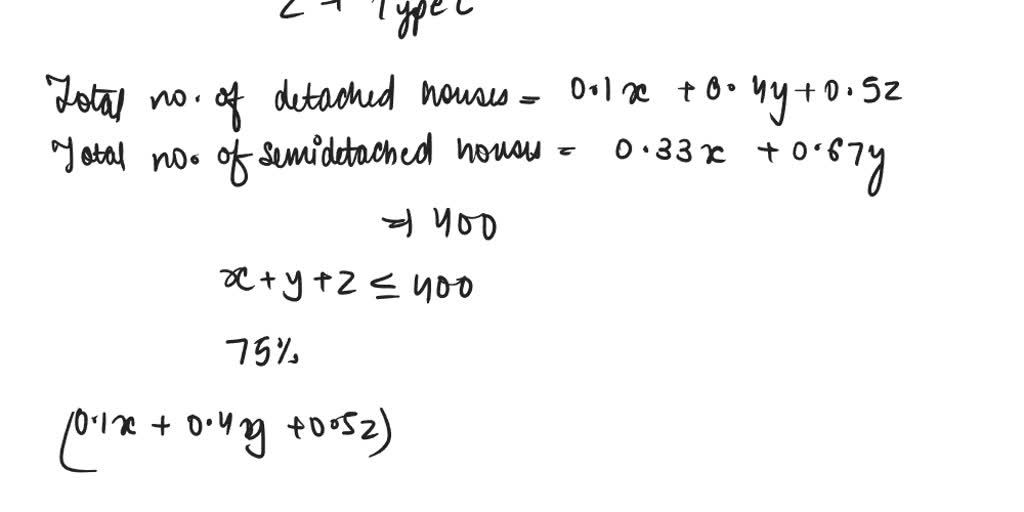 z → Type C
Total no. of detached houses = 0.1x + 0.4y + 0.5z
Total no. of semidetached houses = 0.33x + 0.67y
⇒ 400
x + y + z ≤ 400
75%
(0.1x + 0.4y + 0.5z)